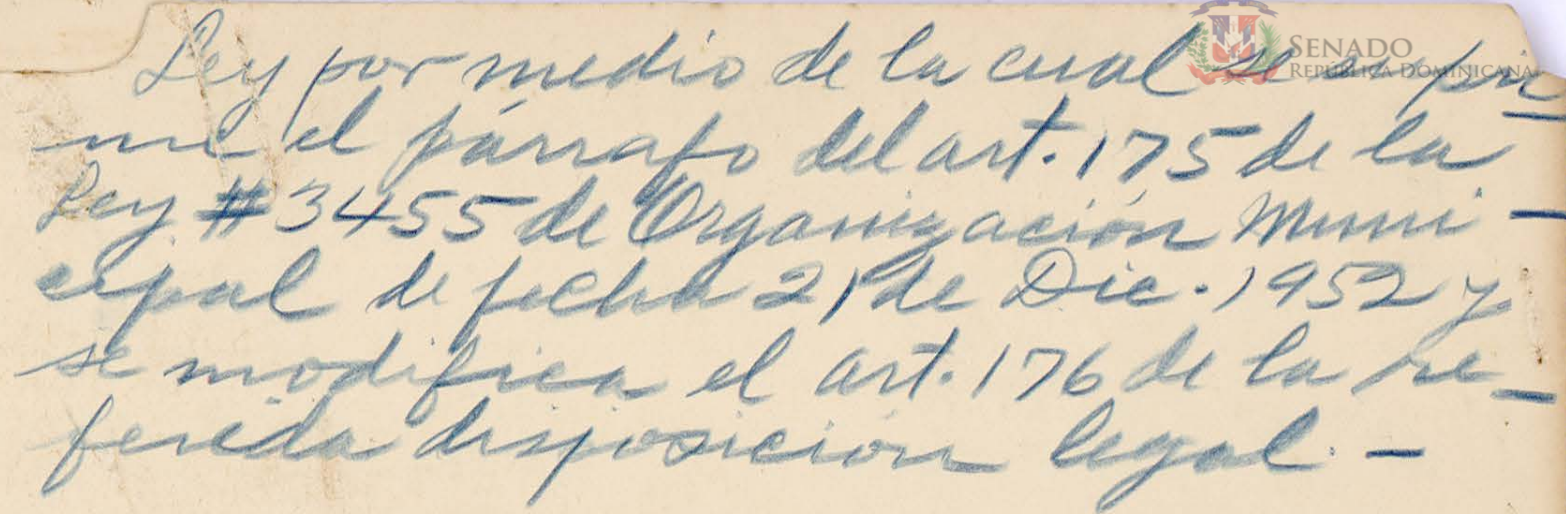 SENADO
REPÚBLICA DOMINICANA
Ley por medio de la cual se
me el párrafo del art. 175 de la
Ley #3455 de Organización Muni-
cipal de fecha 21 de Dic. 1952 y
se modifica el art. 176 de la re-
ferida disposición legal. -